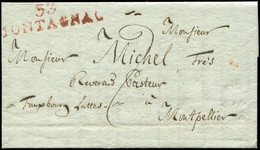 33
MONTAGNAC
Monsieur
Monsieur Michel Très
Reverend Pasteur
Fauxbourg Lattes à
Montpellier